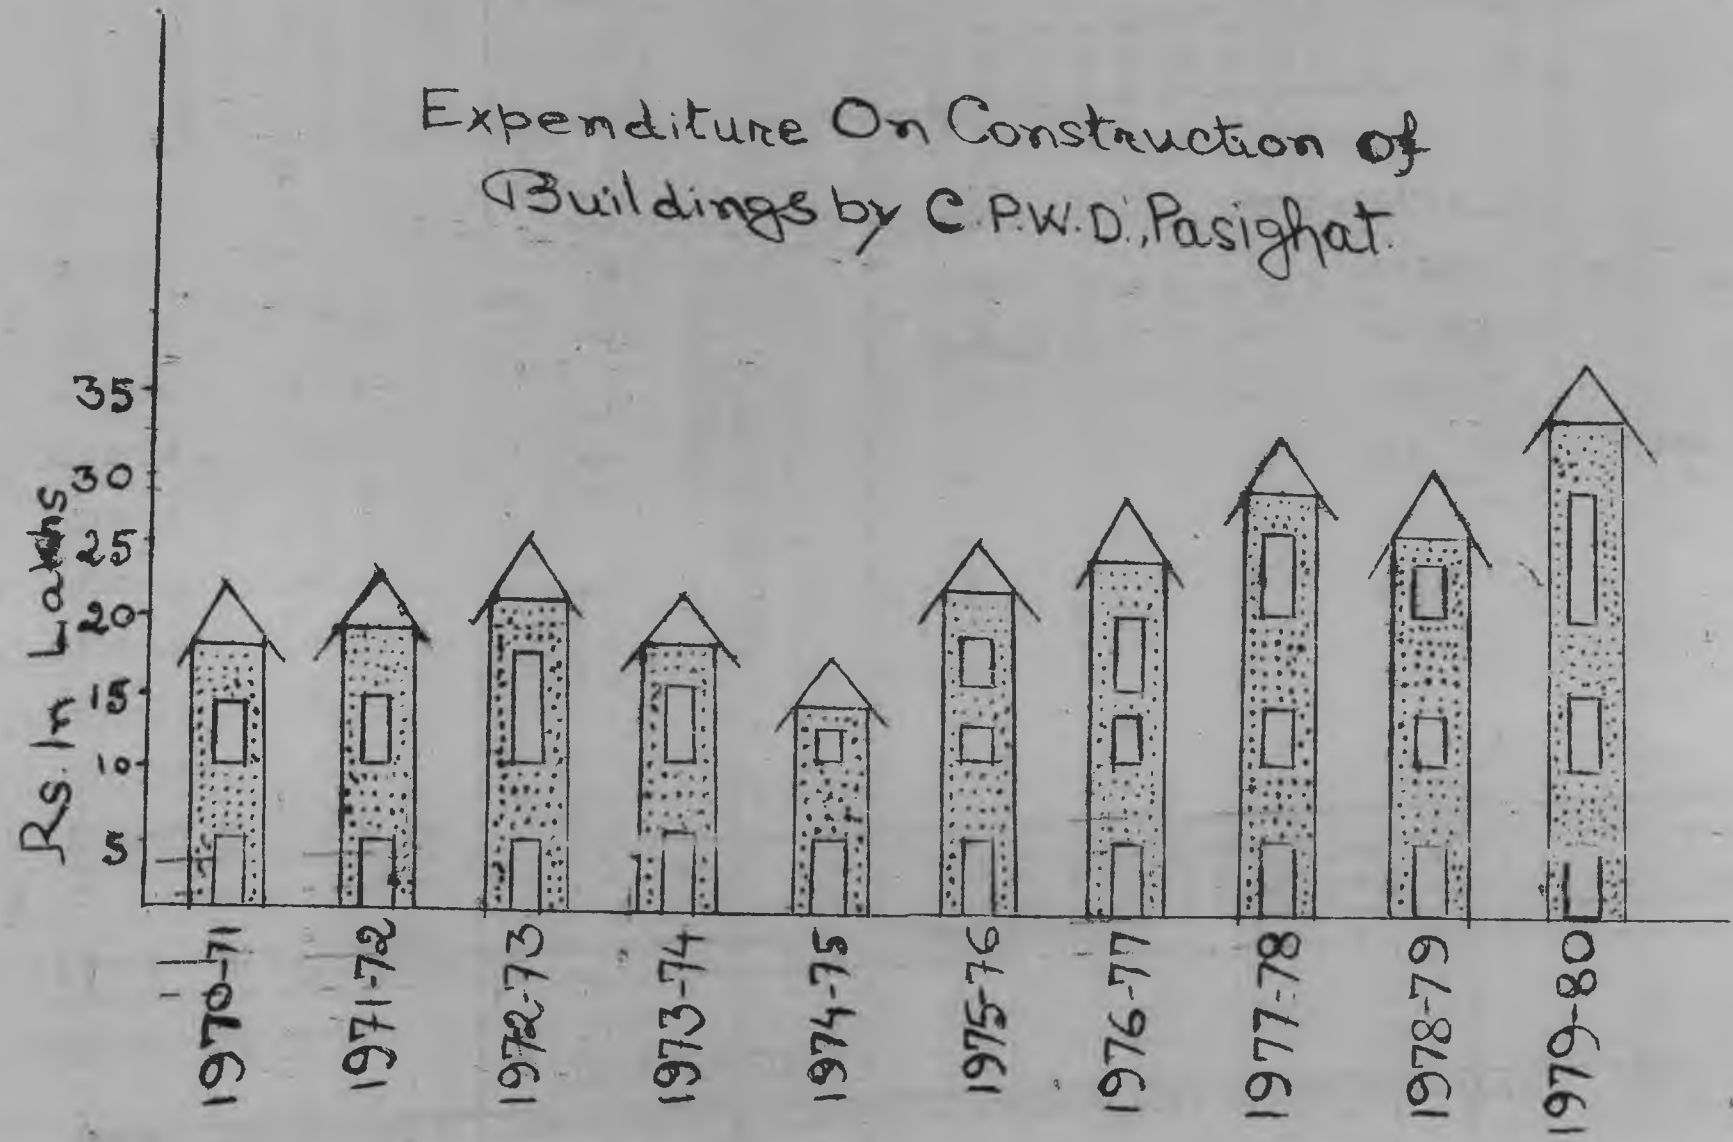 Expenditure On Construction of
Buildings by C.P.W.D., Pasighat.
Rs. In Lakhs
35
30
25
20
15
10
5
1970-71
1971-72
1972-73
1973-74
1974-75
1975-76
1976-77
1977-78
1978-79
1979-80